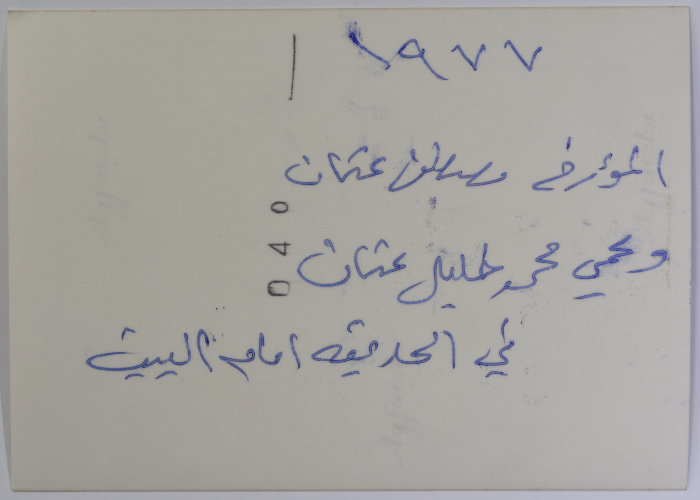 ١٩٧٧
المؤرخ مصطفى عثمان
وعمي محمد خليل عثمان
في الحديقه امام البيت
040